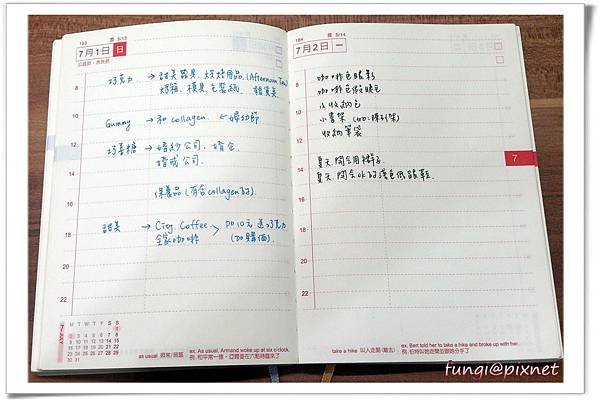 193 農 5/13
7月1日 日
公館節、漁民節
8
巧克力 → 甜美器具、烘焙用品(Afternoon Tea)
烤箱、模具、包裝紙、雜貨美
10
Gummy → 和 collagen. ← 婦幼節
12
巧喜糖 → 婚紗公司、婚企、
婚戒公司.
14
16
保養品(有含collagen的).
18
甜美 → City Coffee > 加10元送巧克力
全家咖啡 (加購價).
20
22
7—JULY
M T W T F S S
1
2 3 4 5 6 7 8
9 10 11 12 13 14 15
16 17 18 19 20 21 22
23 24 25 26 27 28 29
30 31
as usual 照常/照舊
ex. As usual, Armand woke up at six o'clock.
例. 和平常一樣，亞爾曼在六點時醒來了
184 農 5/14
7月2日 一
8
咖啡色眼影
咖啡色假睫毛
小收納包
小書架
收納筆袋
10
12
14
夏天、開会用褲子
夏天、開会for的淺色低跟鞋.
16
18
20
22
7
take a hike 叫人走開(離去)
ex. Bert told her to take a hike and broke up with her.
例. 伯特叫她走開並跟她分手了
fungi@pixnet